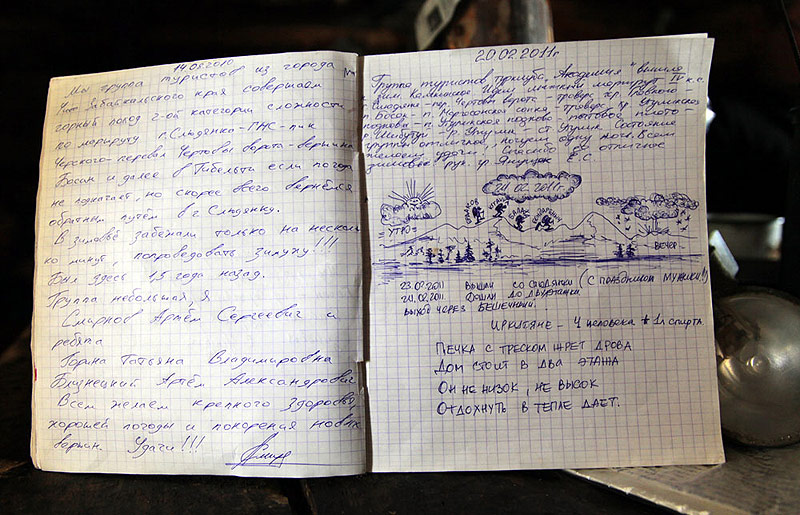 14.08.2010
Мы группа туристов из города
Забайкальского края совершаем
горный поход 2-ой категории сложности
по маршруту г. Слюдянка-ГМС-пик
Черского-перевал Чертовы ворота-вершина
Босан и далее в Тибельти если погода
не подкачает, но скорее всего вернёмся
обратным путём в г Слюдянку.
В зимовьё забежали только на несколь
ко минут, попроведовать зимуху!!!
Был здесь 1,5 года назад.
Группа небольшая, Я
Смирнов Артём Сергеевич и
ребята
Горина Татьяна Владимировна
Близнецкий Артём Александрович
Всем желаем крепкого здоровья,
хорошей погоды и покорения новых
вершин. Удачи!!!
20.02.2011г
Группа туристов турклуба "Академия" вышла
из зим. Идём лыжный маршрут IV к.с.
г. Слюдянка - пер. Чертовы ворота - траверс хр.
п. Босан - п. Маргасанская сопка - траверс
подкова - п. подкова - плато -
р. - р. Утулик - ст. Утулик. Состояние
группы отличное, ночуем одну ночь. Всем
желаем удачи. Спасибо за отличное
зимовье. рук. гр. Е. С.
24.02.2011г.
УТРО
ВЕЧЕР
23.02.2011 ВЫШЛИ СО СЛЮДЯНКИ (С ПРАЗДНИКОМ МУЖИКИ!!)
24.02.2011. ДОШЛИ ДО ДВУЭТАЖКИ
ВЫХОД ЧЕРЕЗ БЕШЕЧНЫЙ.
ИРКУТЯНЕ - 4 ЧЕЛОВЕКА + 1л СПИРТА.
ПЕЧКА С ТРЕСКОМ ЖРЕТ ДРОВА
ДОМ СТОИТ В ДВА ЭТАЖА
ОН НЕ НИЗОК, НЕ ВЫСОК
ОТДОХНУТЬ В ТЕПЛЕ ДАЕТ.